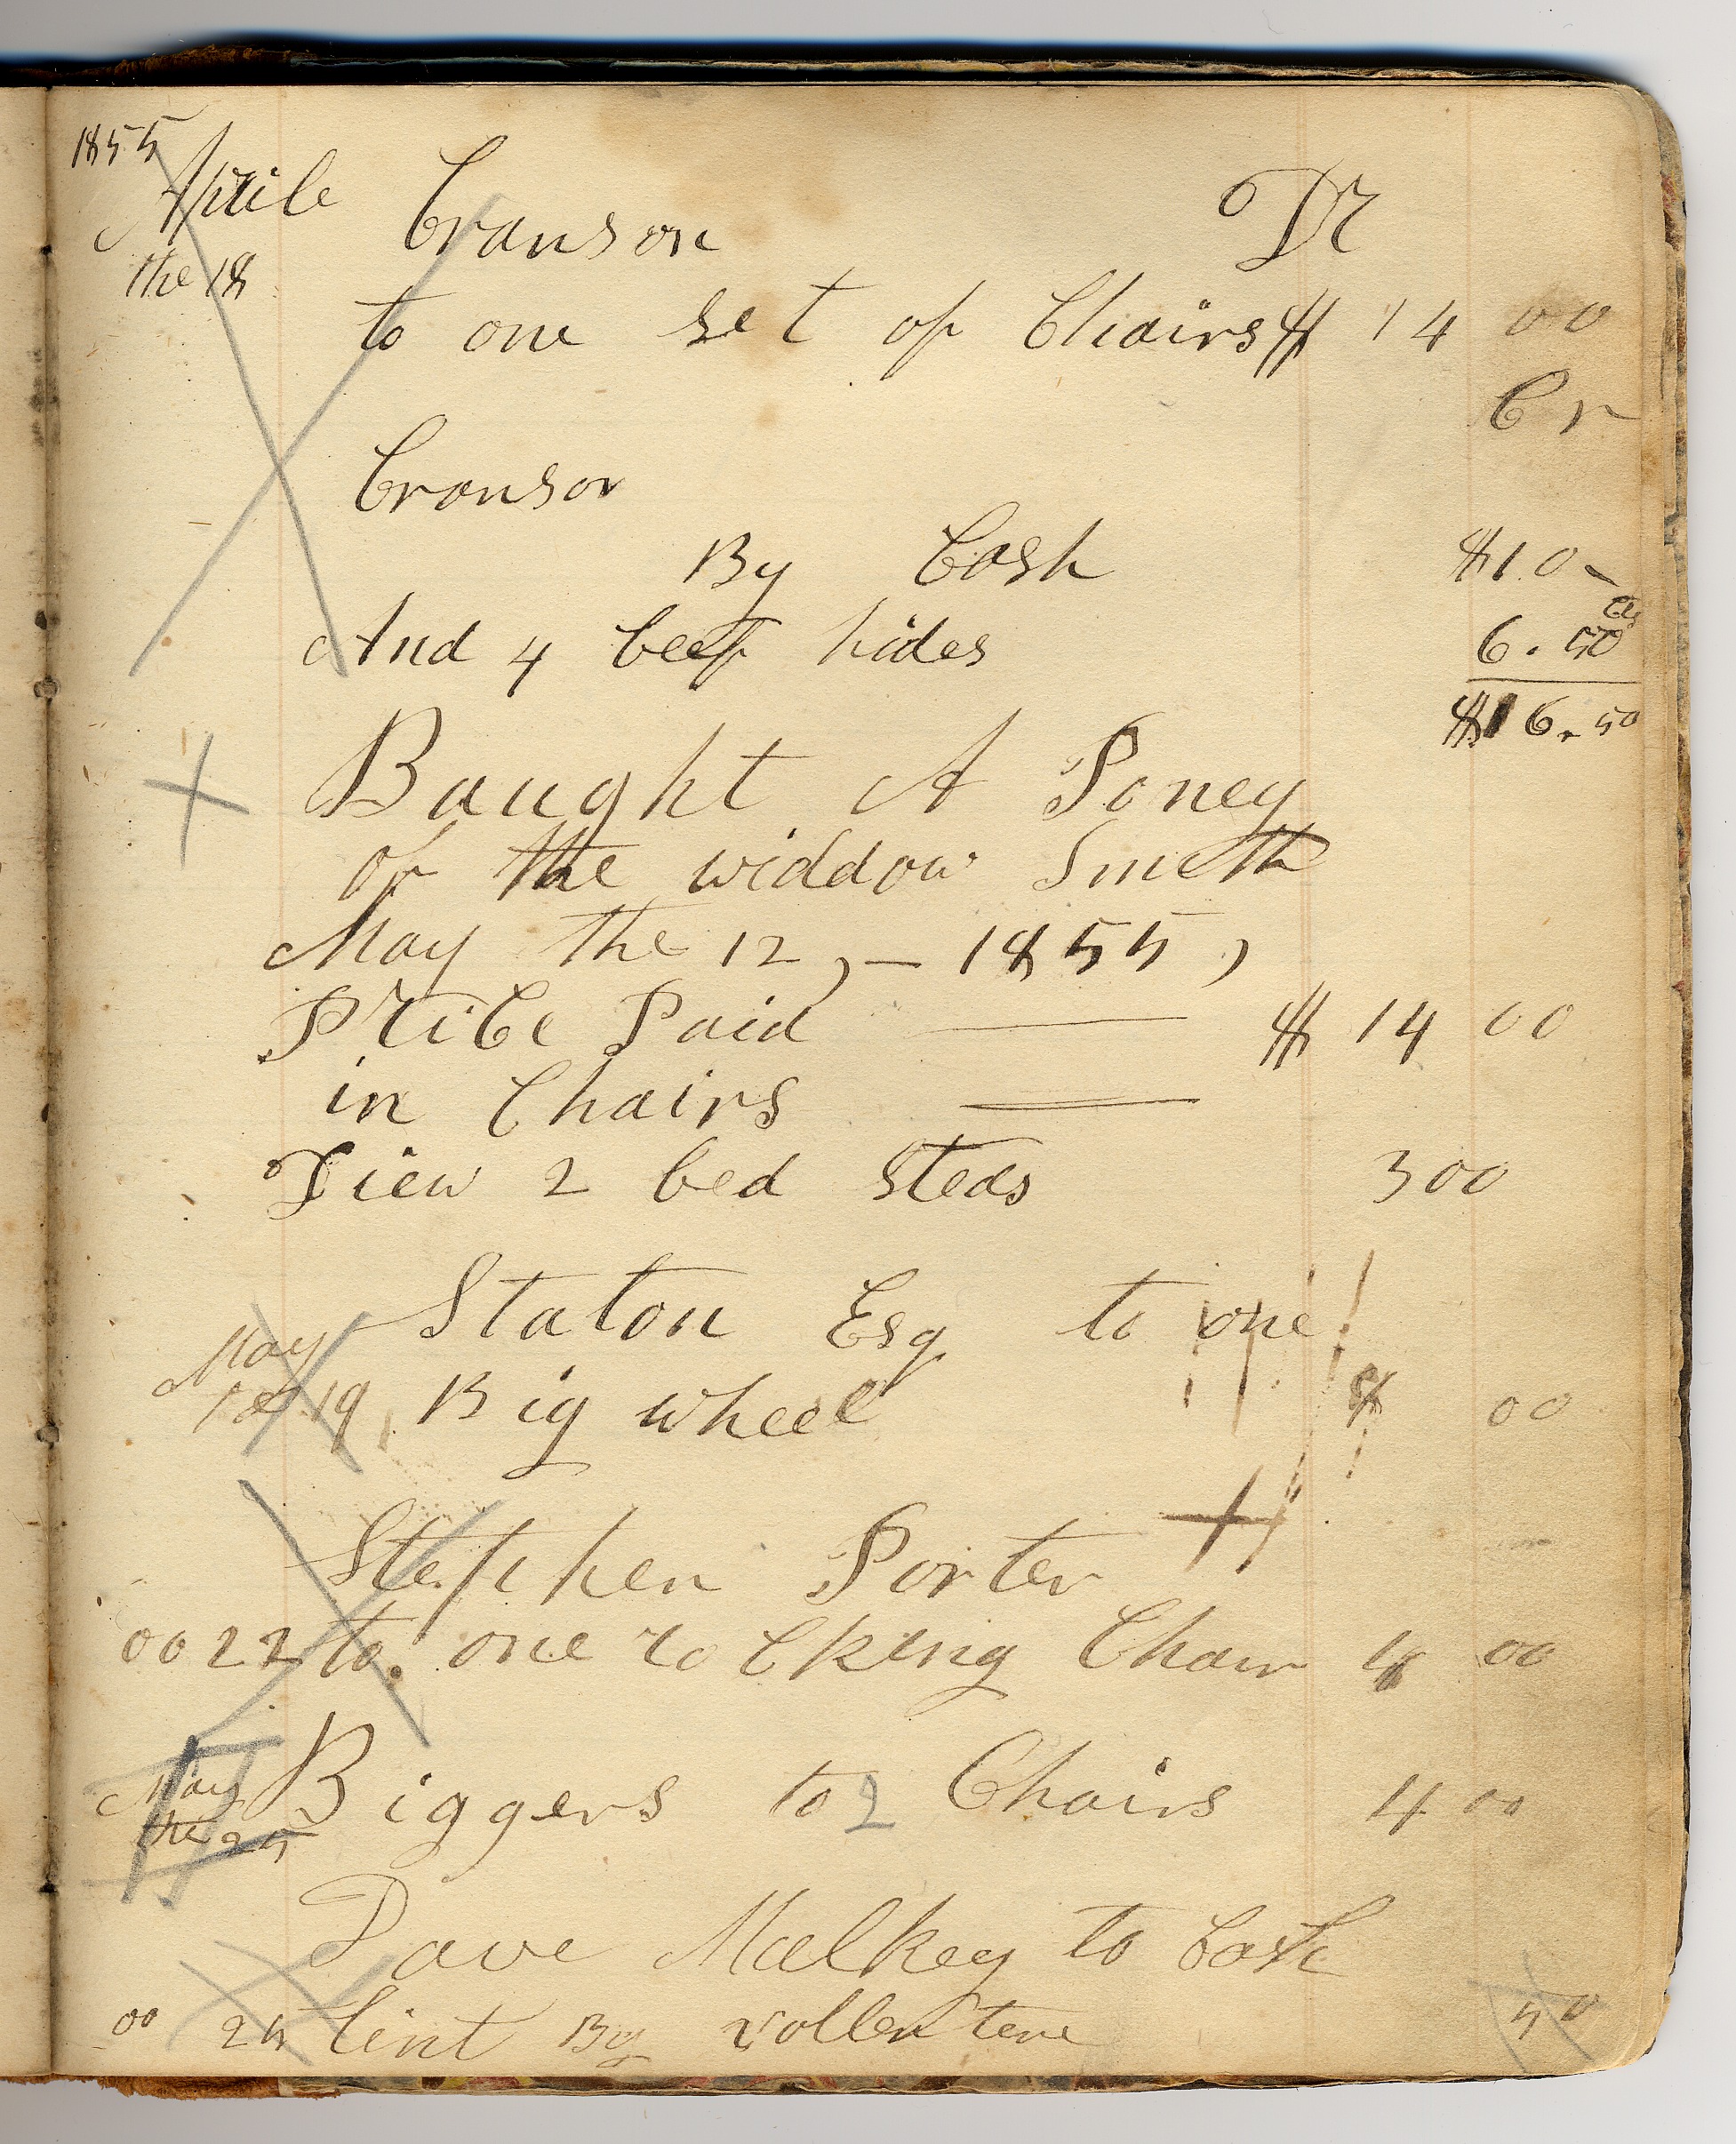 1855
Aprile Cranson Dr
the 18
to one set of Chairs $ 14 00
Cr
Cranson
By Cash $10
cts
And 4 beef hides 6.50
$16.50
Baught A Poney
of the widdow Smith
May the 12, — 1855,
Price Paid $ 14 00
in Chairs
2 bed steds 3 00
Staton Esq to one
May
the 19 Big wheel 00
Stephen Porter
00 22 to one rocking Chair 4 00
May Biggers to 2 Chairs 4 00
the 25
Dave Malkey to Cash
00 25 lint By 50